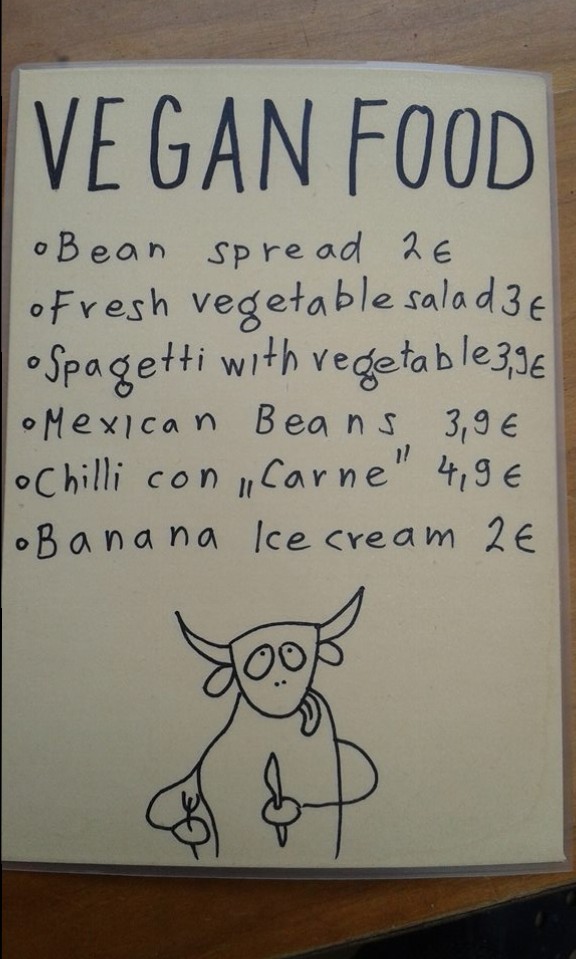 VEGAN FOOD
Bean spread 2€
Fresh vegetable salad 3€
Spagetti with vegetable 3,9€
Mexican Beans 3,9€
Chilli con „Carne” 4,9€
Banana Ice cream 2€